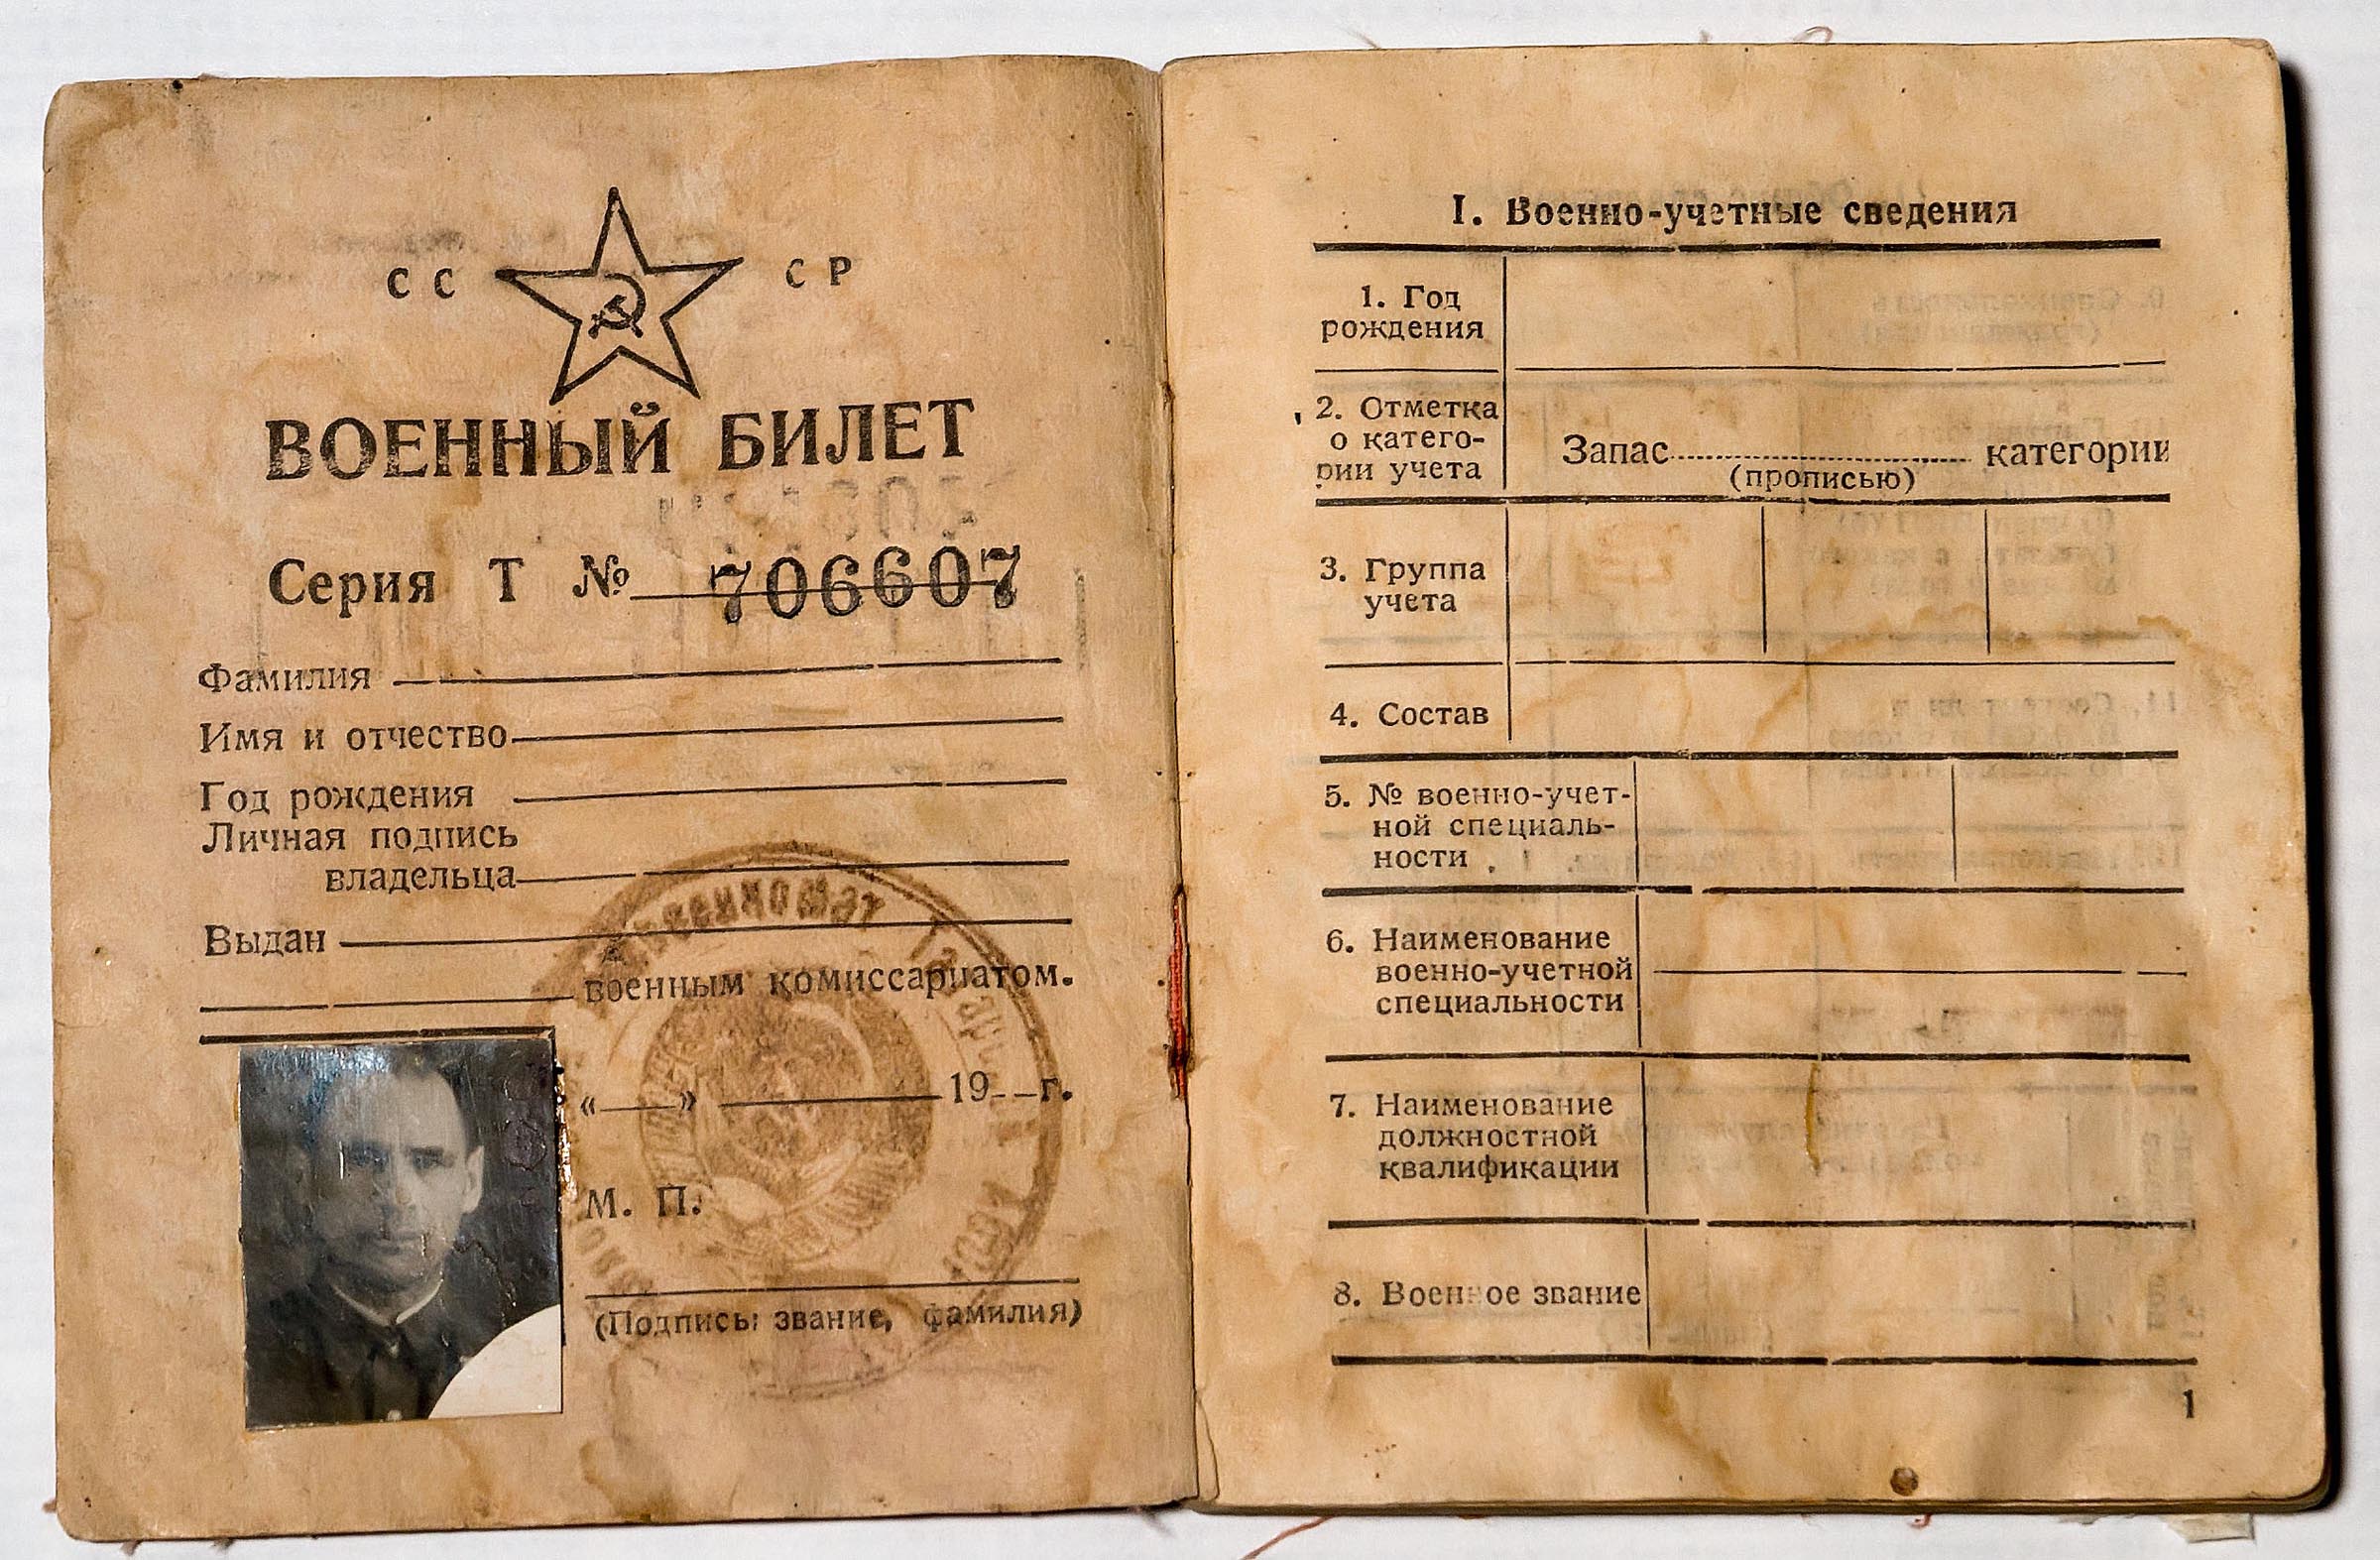 СС СР
ВОЕННЫЙ БИЛЕТ
Серия Т № 706607
Фамилия
Имя и отчество
Год рождения
Личная подпись
владельца
Выдан
военным комиссариатом.
« » 19 г.
М. П.
(Подпись, звание, фамилия)
I. Военно-учетные сведения
1. Год
рождения
2. Отметка
о катего-
рии учета
Запас категории
(прописью)
3. Группа
учета
4. Состав
5. № военно-учет-
ной специаль-
ности
6. Наименование
военно-учетной
специальности
7. Наименование
должностной
квалификации
8. Военное звание
1